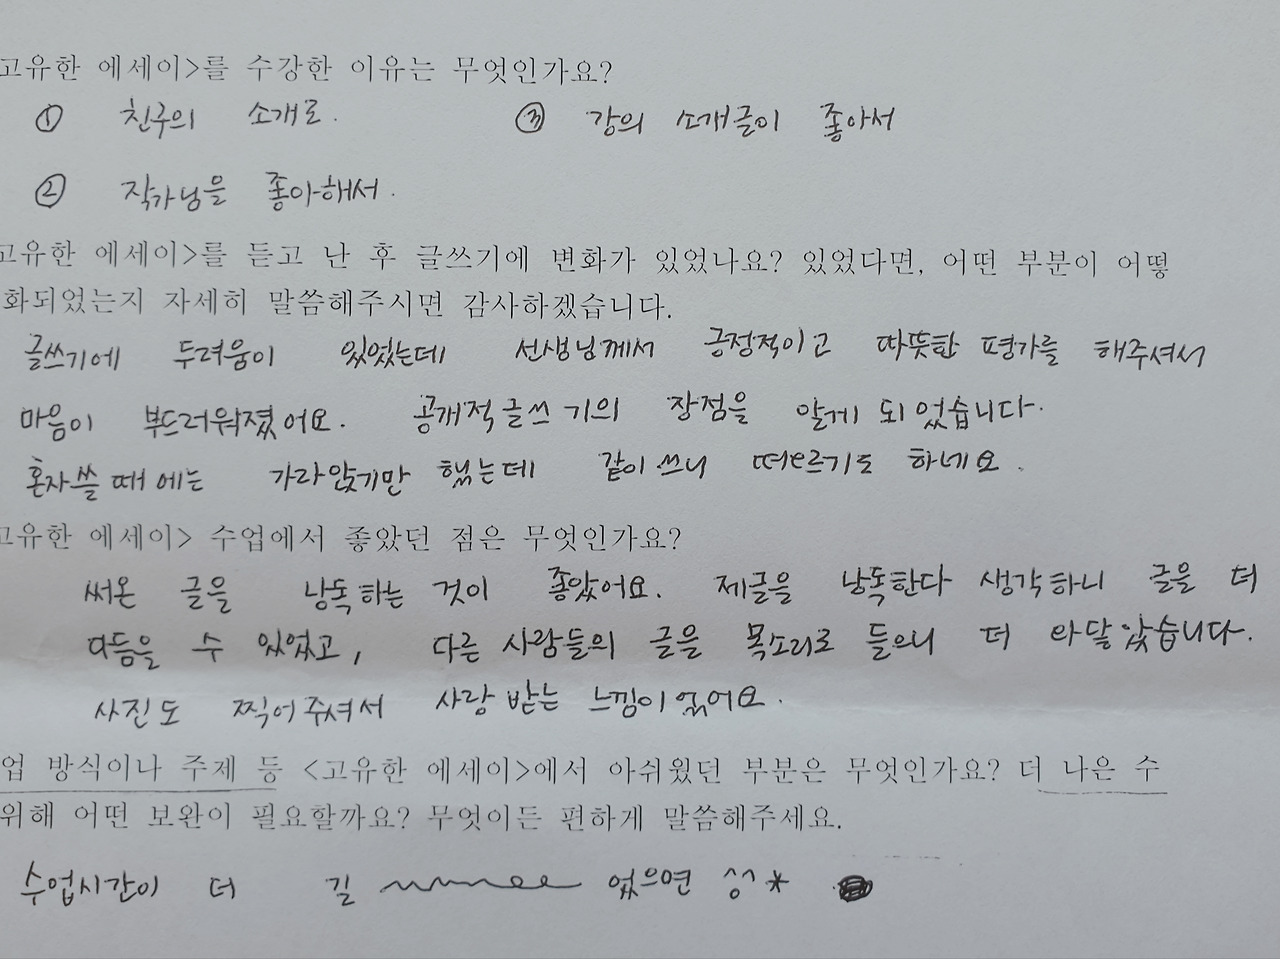 고유한 에세이>를 수강한 이유는 무엇인가요?
① 친구의 소개로. ③ 강의 소개글이 좋아서
② 작가님을 좋아해서.
고유한 에세이>를 듣고 난 후 글쓰기에 변화가 있었나요? 있었다면, 어떤 부분이 어떻
화되었는지 자세히 말씀해주시면 감사하겠습니다.
글쓰기에 두려움이 있었는데 선생님께서 긍정적이고 따뜻한 평가를 해주셔서
마음이 부드러워졌어요. 공개적글쓰기의 장점을 알게 되었습니다.
혼자쓸 때에는 가라앉기만 했는데 같이쓰니 떠오르기도 하네요.
고유한 에세이> 수업에서 좋았던 점은 무엇인가요?
써온 글을 낭독하는 것이 좋았어요. 제글을 낭독한다 생각하니 글을 더
다듬을 수 있었고, 다른 사람들의 글을 목소리로 들으니 더 와닿았습니다.
사진도 찍어주셔서 사랑받는 느낌이었어요.
업 방식이나 주제 등 <고유한 에세이>에서 아쉬웠던 부분은 무엇인가요? 더 나은 수
위해 어떤 보완이 필요할까요? 무엇이든 편하게 말씀해주세요.
수업시간이 더 길 었으면 ^^*